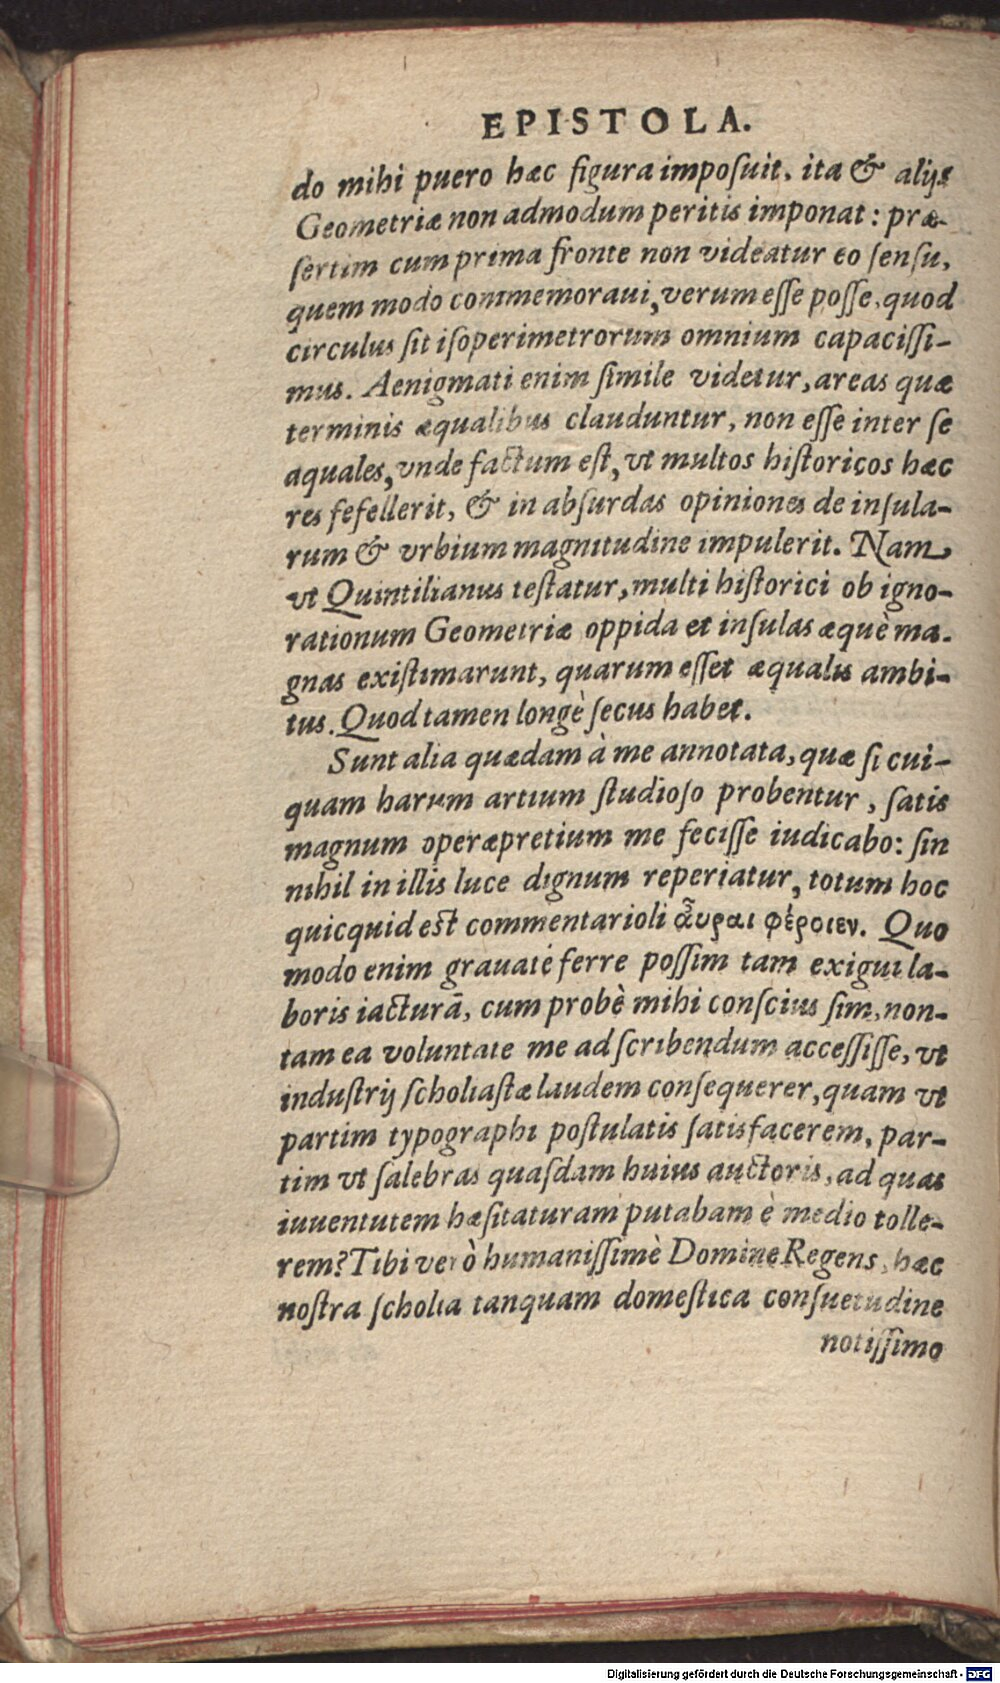 EPISTOLA.
do mihi puero hæc figura imposuit, ita & alijs
Geometriæ non admodum peritis imponat: præ-
sertim cum prima fronte non videatur eo sensu,
quem modo commemoraui, verum esse posse, quod
circulus sit isoperimetrorum omnium capacissi-
mus. Aenigmati enim simile videtur, areas quæ
terminis æqualibus clauduntur, non esse inter se
æquales, vnde factum est, vt multos historicos hæc
res fefellerit, & in absurdas opiniones de insula-
rum & vrbium magnitudine impulerit. Nam
vt Quintilianus testatur, multi historici ob igno-
rationum Geometriæ oppida et insulas æquè ma-
gnas existimarunt, quarum esset æqualis ambi-
tus. Quod tamen longè secus habet.
Sunt alia quædam à me annotata, quæ si cui-
quam harum artium studioso probentur, satis
magnum operæpretium me fecisse iudicabo: sin
nihil in illis luce dignum reperiatur, totum hoc
quicquid est commentarioli ἆυραι φέροιεν. Quo
modo enim grauatè ferre possim tam exigui la-
boris iacturã, cum probè mihi conscius sim, non-
tam ea voluntate me ad scribendum accessisse, vt
industrij scholiastæ laudem consequerer, quam vt
partim typographi postulatis satisfacerem, par-
tim vt salebras quasdam huius auctoris, ad quas
iuuentutem hæsitaturam putabam è medio tolle-
rem? Tibi verò humanissimè Domine Regens, hæc
nostra scholia tanquam domestica consuetudine
notissimo
Digitalisierung gefördert durch die Deutsche Forschungsgemeinschaft - DFG